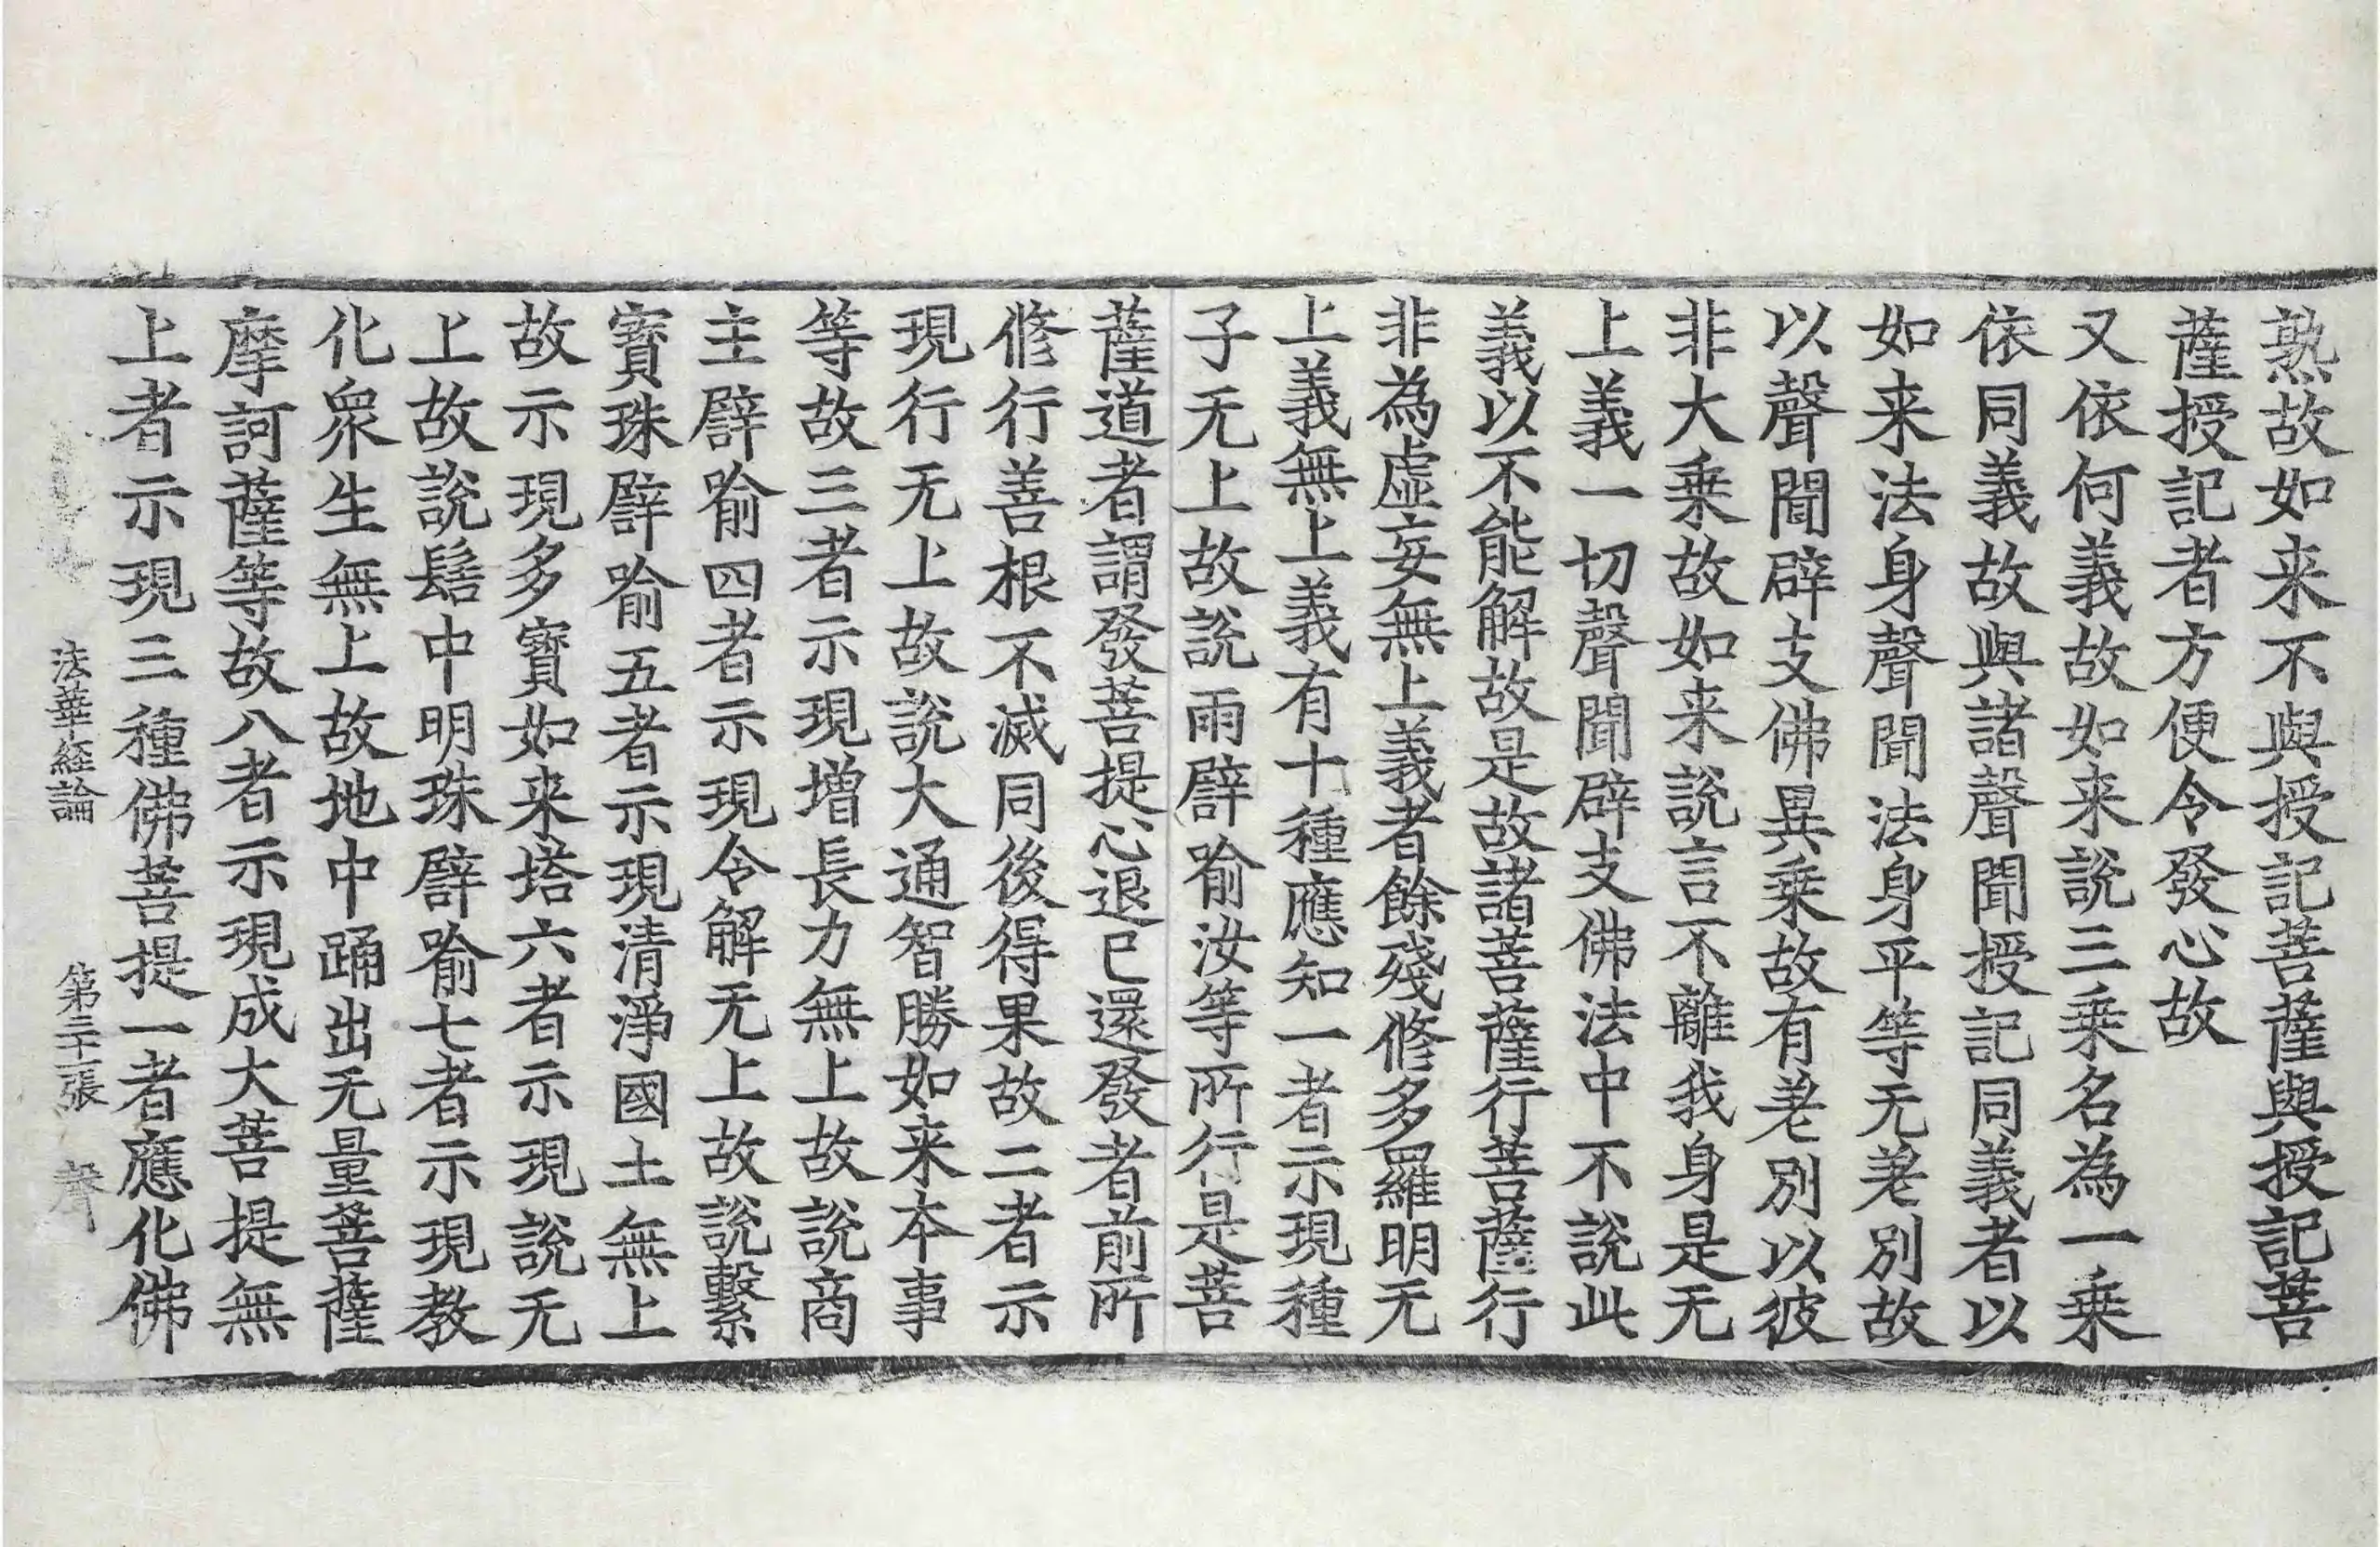 熟故如来不與授記菩薩與授記菩
薩授記者方便令發心故
又依何義故如来說三乗名為一乗
依同義故與諸聲聞授記同義者以
如来法身聲聞法身平等无差別故
以聲聞辟支佛異乗故有差別以彼
非大乗故如来說言不離我身是无
上義一切聲聞辟支佛法中不說此
義以不能解故是故諸菩薩行菩薩行
非為虛妄無上義者餘殘修多羅明无
上義無上義有十種應知一者示現種
子无上故說雨譬喻汝等所行是菩
薩道者謂發菩提心退已還發者前所
修行善根不滅同後得果故二者示
現行无上故說大通智勝如来本事
等故三者示現增長力無上故說商
主譬喻四者示現令解无上故說繫
寶珠譬喻五者示現清淨國土無上
故示現多寶如来塔六者示現說无
上故說髻中明珠譬喻七者示現教
化衆生無上故地中踊出无量菩薩
摩訶薩等故八者示現成大菩提無
上者示現三種佛菩提一者應化佛
法華経論 第三十二張 聲